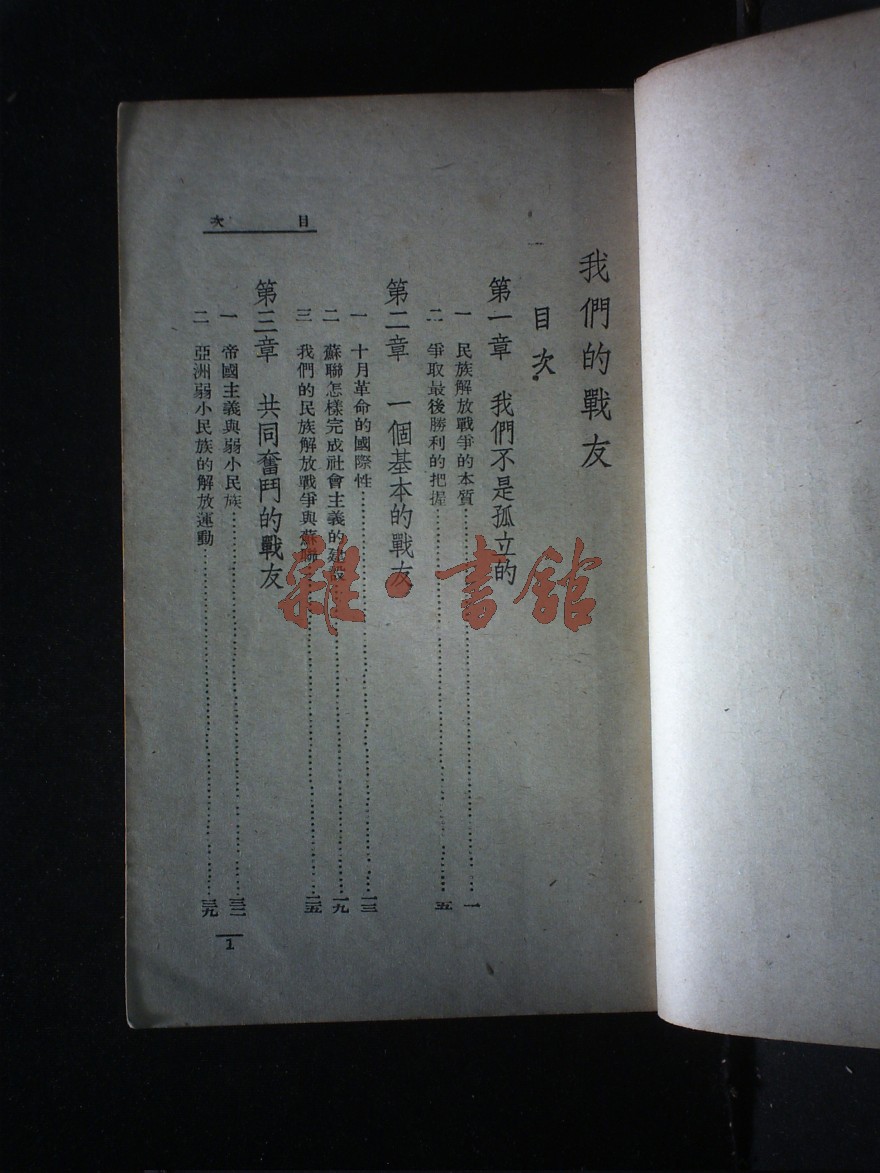 我們的戰友
目次
第一章 我們不是孤立的
一 民族解放戰爭的本質……一
二 爭取最後勝利的把握……五
第二章 一個基本的戰友
一 十月革命的國際性……一三
二 蘇聯怎樣完成社會主義的建設……一九
三 我們的民族解放戰爭與蘇聯……二五
第三章 共同奮鬥的戰友
一 帝國主義與弱小民族……三二
二 亞洲弱小民族的解放運動……三九
目次
1
雜·書館